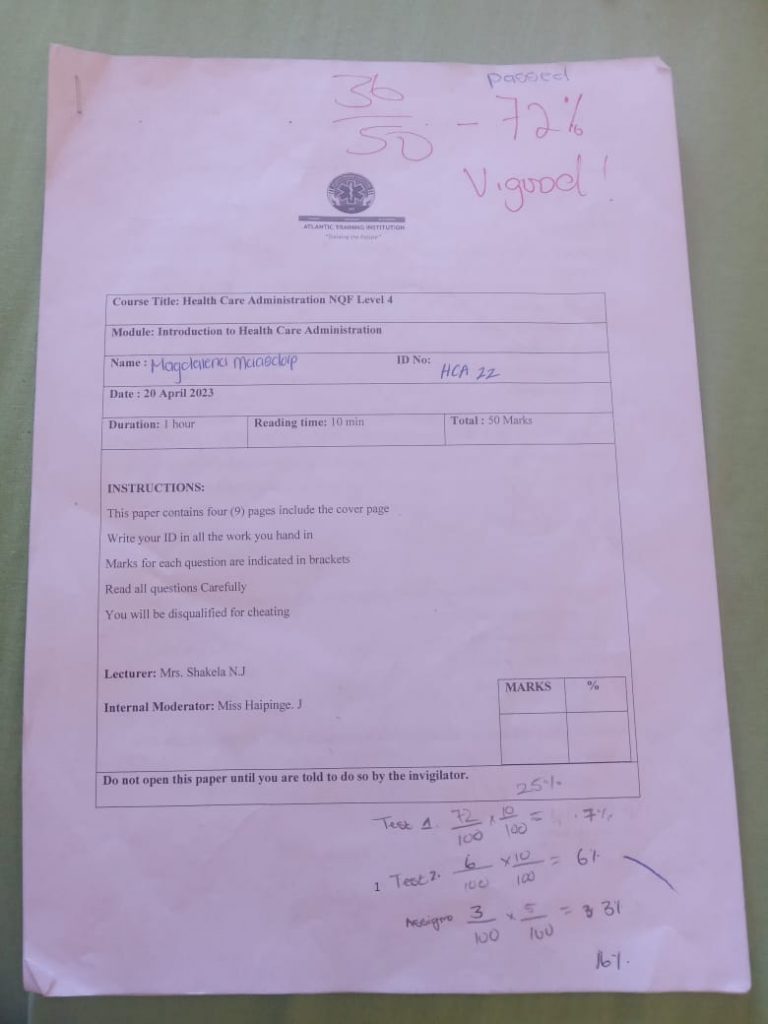 passed
36
50
- 72%
V. good!
ATLANTIC TRAINING INSTITUTION
Course Title: Health Care Administration NQF Level 4
Module: Introduction to Health Care Administration
Name : Magdalena ID No: HCA 22
Date : 20 April 2023
Duration: 1 hour Reading time: 10 min Total : 50 Marks
INSTRUCTIONS:
This paper contains four (9) pages include the cover page
Write your ID in all the work you hand in
Marks for each question are indicated in brackets
Read all questions Carefully
You will be disqualified for cheating
Lecturer: Mrs. Shakela N.J
MARKS %
Internal Moderator: Miss Haipinge. J
Do not open this paper until you are told to do so by the invigilator.
25%
Test 1. 72/100 x 10/100 = 7%
1 Test 2. 6/100 x 10/100 = 6%
Assignm 3/100 x 5/100 = 3%
16%.